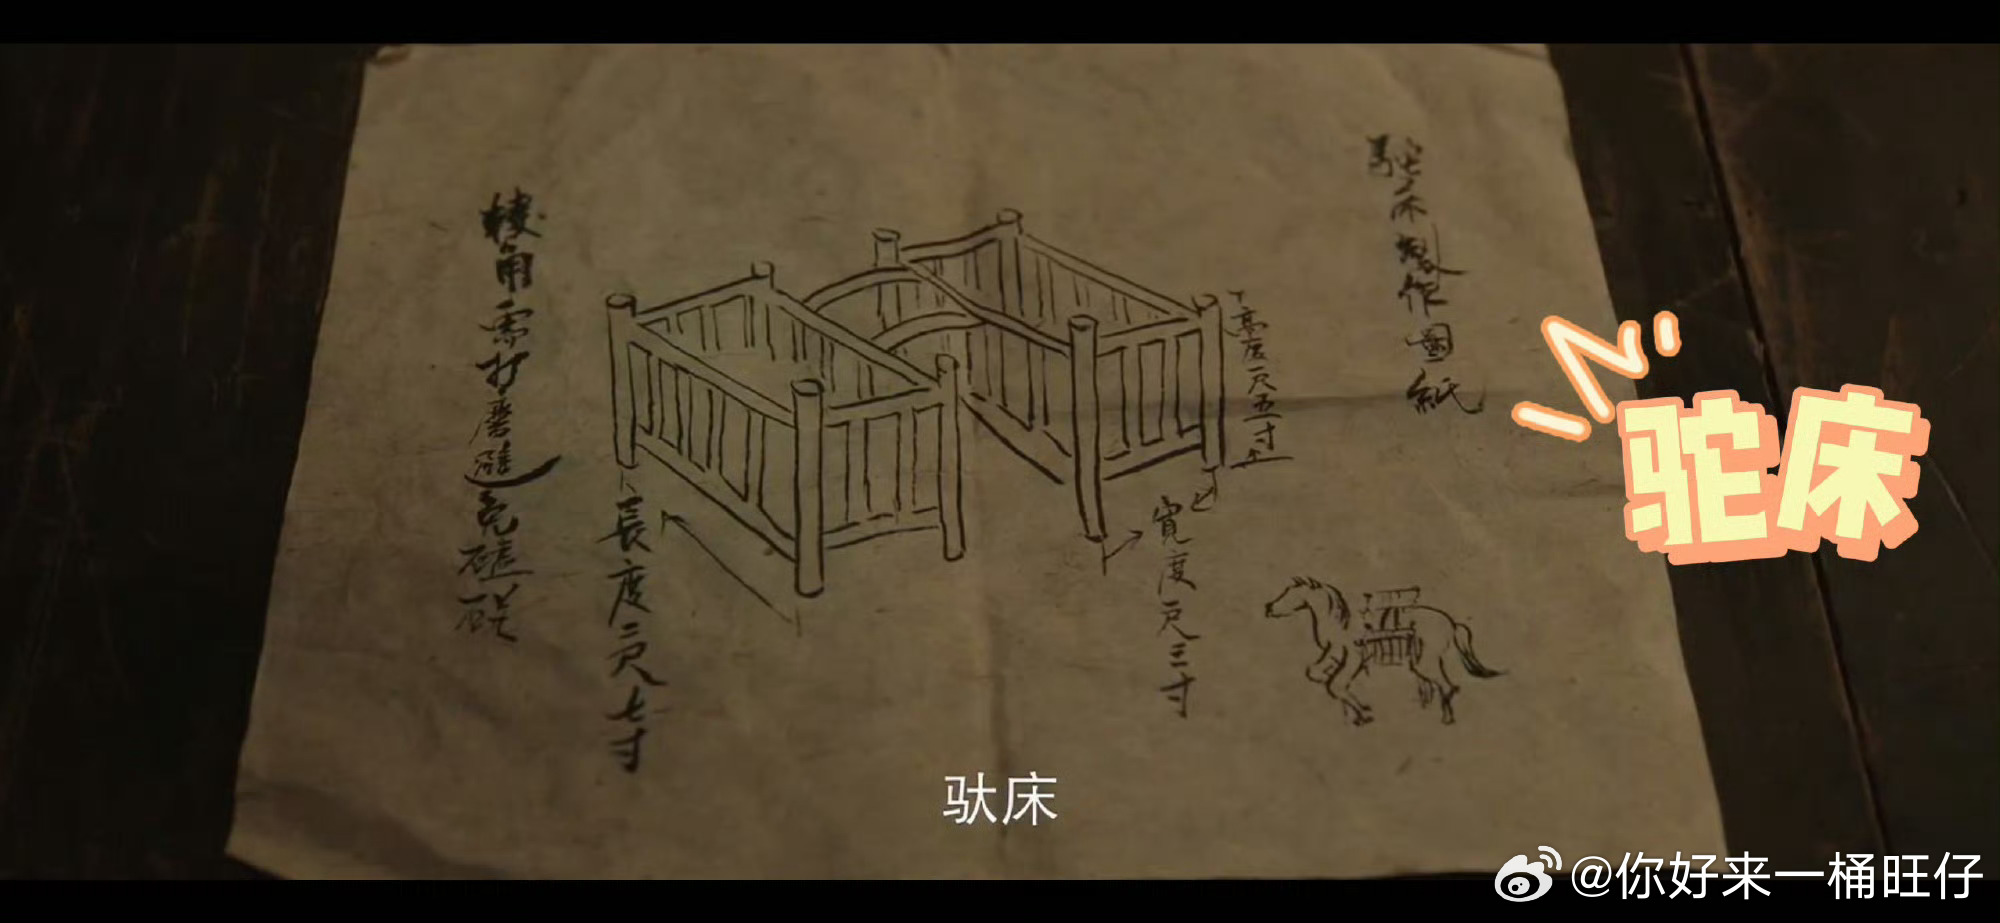 駝床製作圖紙
高度一尺五寸
寬度一尺三寸
長度二尺七寸
棱角需打磨避免磕碰
驮床
驼床
@你好来一桶旺仔